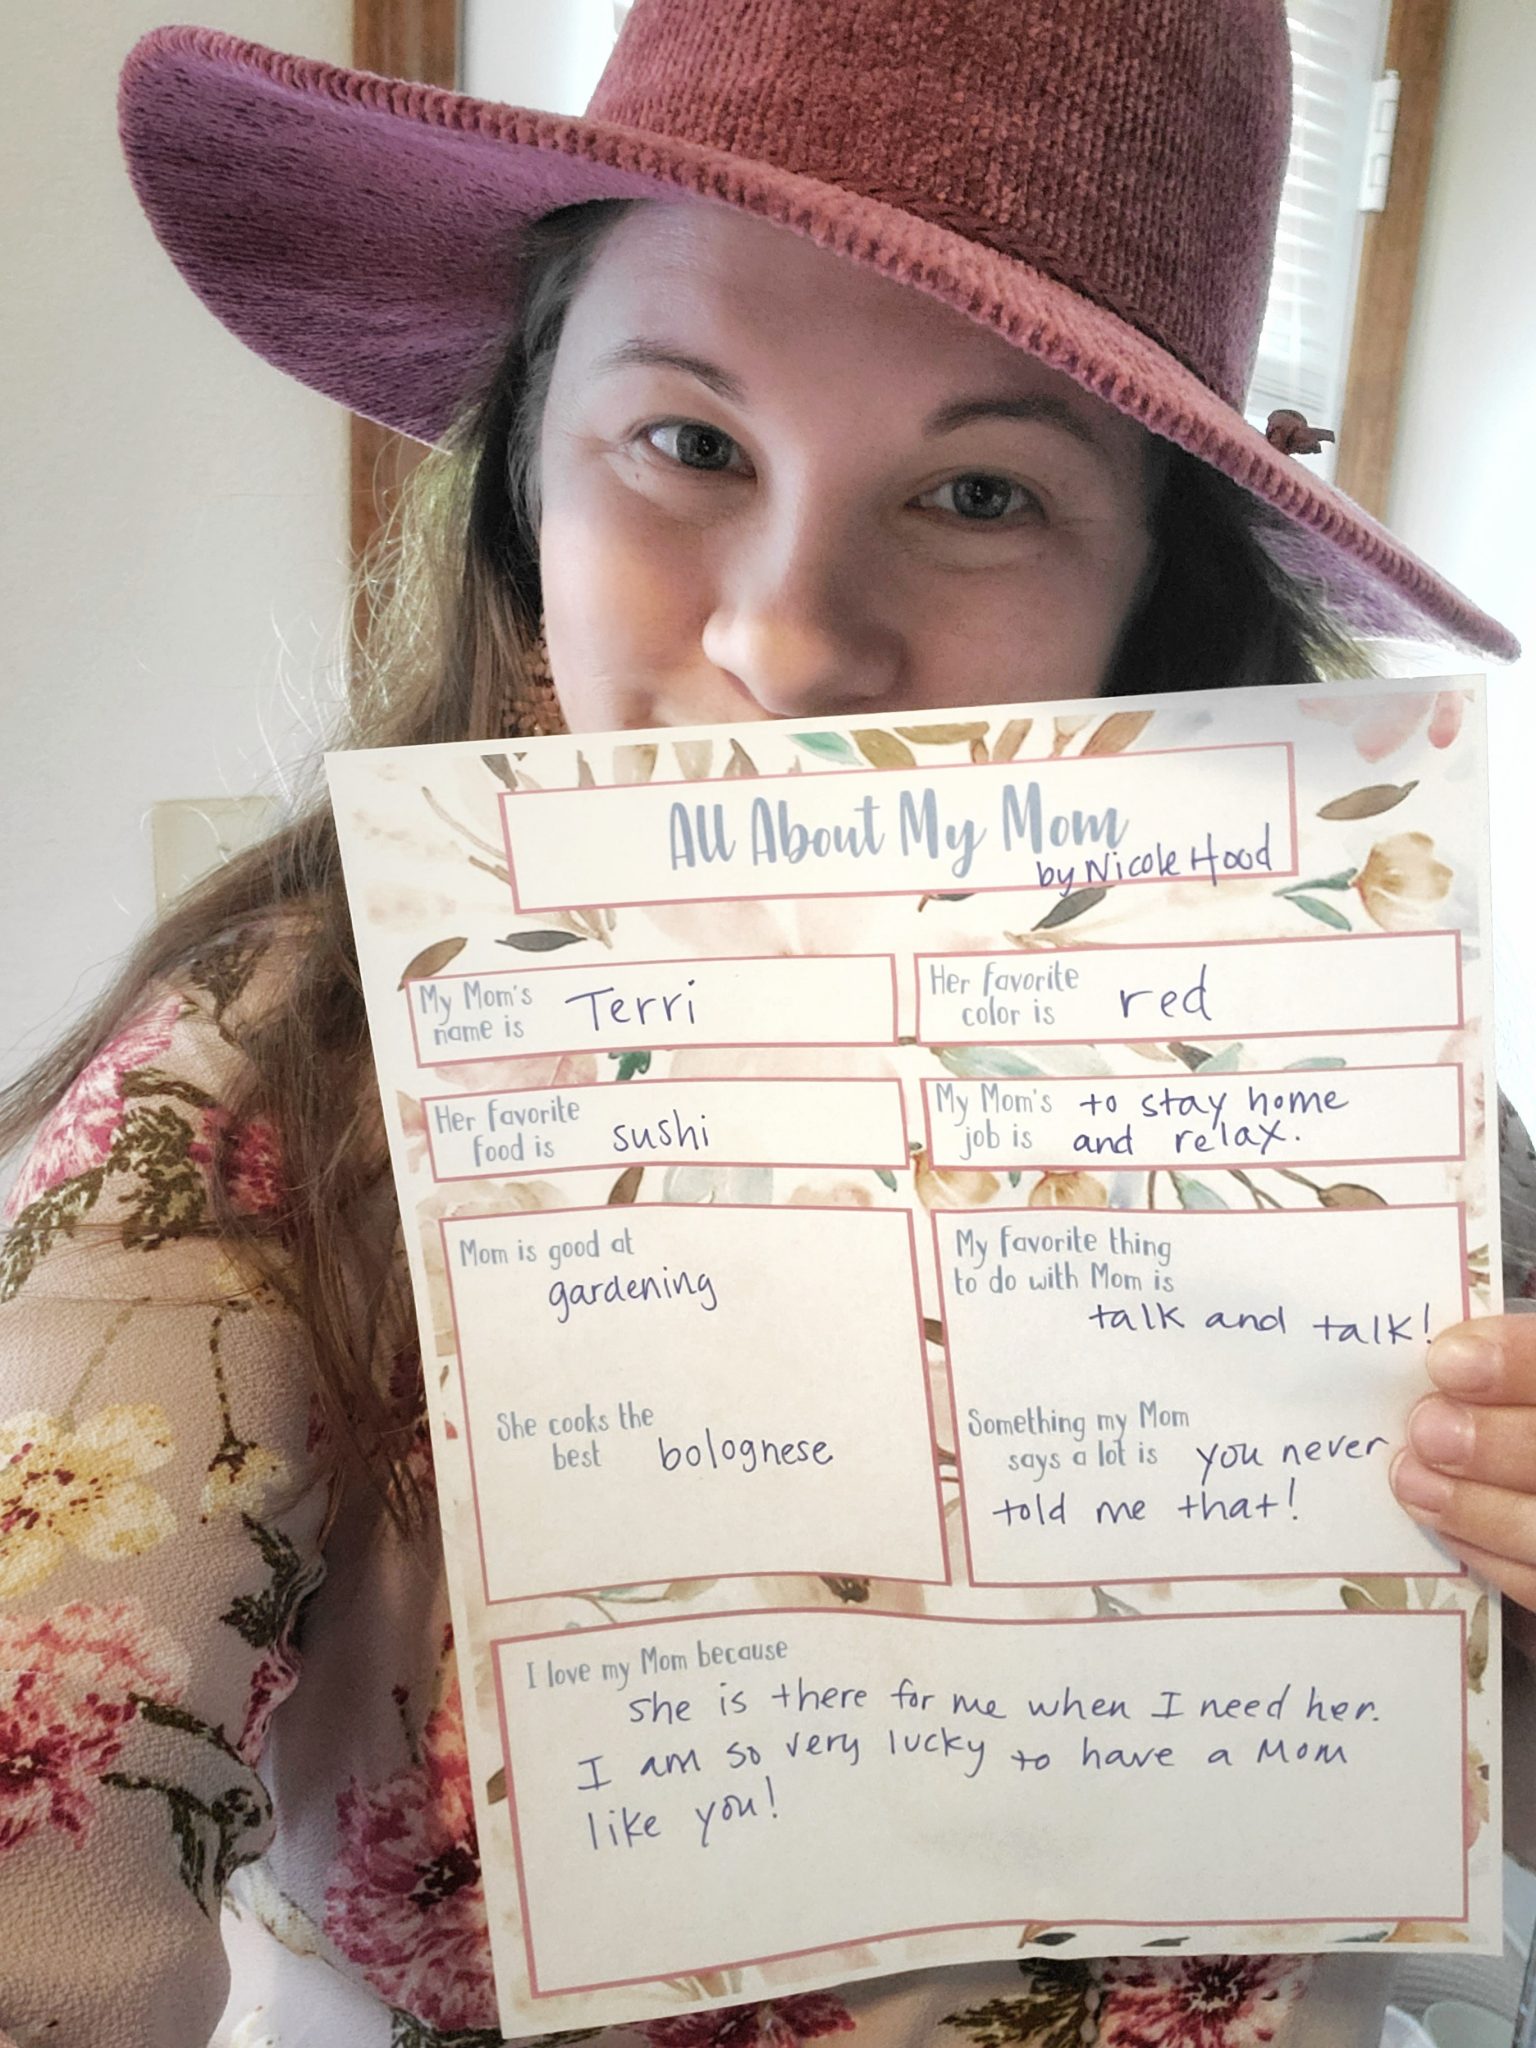 All About My Mom
by Nicole Hood
My Mom's
name is Terri
Her favorite
color is red
Her favorite
food is sushi
My Mom's to stay home
job is and relax.
Mom is good at
gardening
She cooks the
best bolognese
My favorite thing
to do with Mom is
talk and talk!
Something my Mom
says a lot is you never
told me that!
I love my Mom because
she is there for me when I need her.
I am so very lucky to have a Mom
like you!